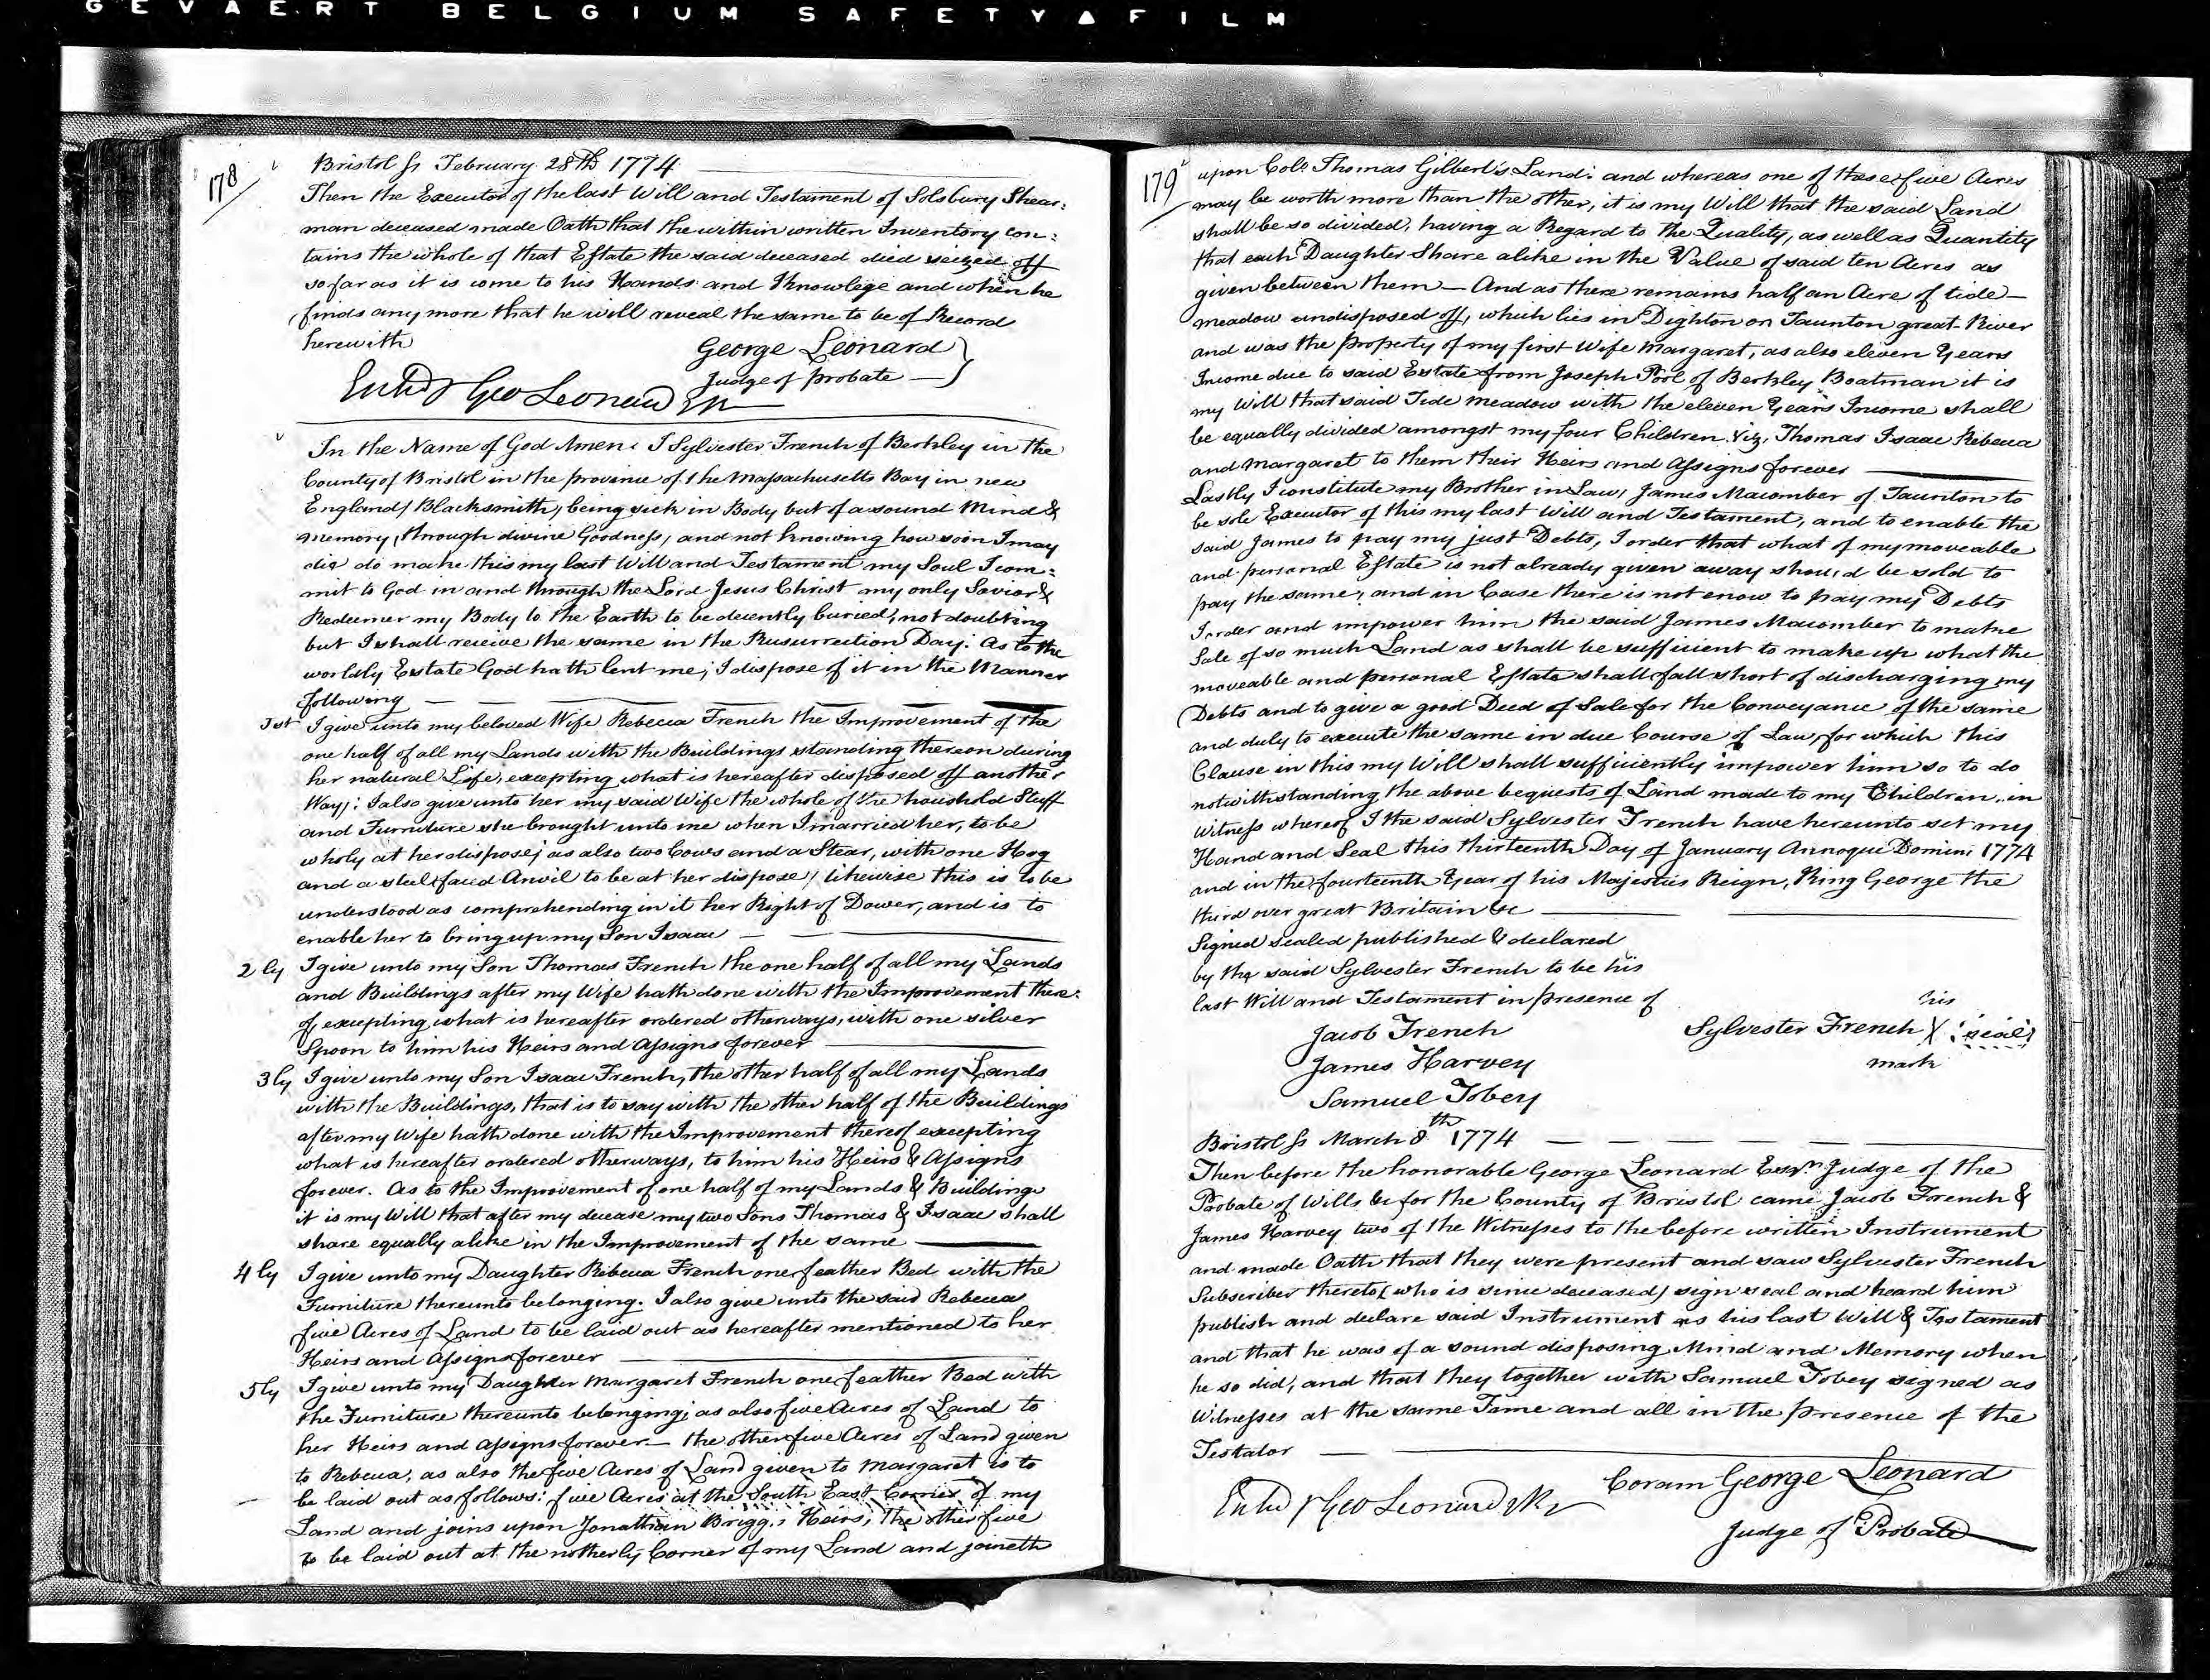 GEVAERT BELGIUM SAFETY▲FILM
178
Bristol ss February 28th 1774
Then the Executor of the last Will and Testament of Solsbury Shear:
man deceased made Oath that the within written Inventory con:
tains the whole of that Estate the said deceased died seized off
so far as it is come to his Hands and Knowlege and when he
finds any more that he will reveal the same to be of Record
herewith
George Leonard
Judge of Probate
Entd Geo Leonard
In the Name of God Amen. I Sylvester French of Berkley in the
County of Bristol in the province of the Massachusetts Bay in new
England, Blacksmith, being sick in Body but of a sound Mind &
memory, through divine Goodness, and not knowing how soon I may
die do make this my last Will and Testament my Soul I com:
mit to God in and through the Lord Jesus Christ my only Savior &
Redeemer my Body to the Earth to be decently buried, not doubting
but I shall receive the same in the Resurrection Day: As to the
worldly Estate God hath lent me, I dispose of it in the Manner
following
1st I give unto my beloved Wife Rebecca French the Improvement of the
one half of all my Lands with the Buildings standing thereon during
her natural Life, excepting what is hereafter disposed off another
Way; I also give unto her my said Wife the whole of the houshold Stuff
and Furniture she brought unto me when I married her, to be
wholy at her dispose; as also two Cows and a Stear, with one Hog
and a steel faced Anvil to be at her dispose, likewise this is to be
understood as comprehending in it her Right of Dower, and is to
enable her to bring up my Son Isaac
2ly I give unto my Son Thomas French the one half of all my Lands
and Buildings after my Wife hath done with the Improvement there:
of, excepting what is hereafter ordered otherways, with one silver
Spoon to him his Heirs and Assigns forever
3ly I give unto my Son Isaac French, the other half of all my Lands
with the Buildings, that is to say with the other half of the Buildings
after my Wife hath done with the Improvement thereof excepting
what is hereafter ordered otherways, to him his Heirs & Assigns
forever. As to the Improvement of one half of my Lands & Buildings
it is my Will that after my decease my two Sons Thomas & Isaac shall
share equally alike in the Improvement of the same
4ly I give unto my Daughter Rebecca French one feather Bed with the
Furniture thereunto belonging. I also give unto the said Rebecca
five Acres of Land to be laid out as hereafter mentioned to her
Heirs and Assigns forever
5ly I give unto my Daughter Margaret French one feather Bed with
the Furniture thereunto belonging; as also five Acres of Land to
her Heirs and Assigns forever — the other five Acres of Land given
to Rebecca, as also the five Acres of Land given to Margaret is to
be laid out as follows: five Acres at the South East Corner of my
Land and joins upon Jonathan Brigg's Heirs, The other five
to be laid out at the notherly Corner of my Land and joineth
179
upon Colo. Thomas Gilbert's Land: and whereas one of these five Acres
may be worth more than the other, it is my Will that the said Land
shall be so divided, having a Regard to the Quality, as well as Quantity
that each Daughter share alike in the Value of said ten Acres as
given between them — And as there remains half an Acre of tide
meadow undisposed off, which lies in Dighton on Taunton great River
and was the property of my first Wife Margaret, as also eleven Years
Income due to said Estate from Joseph Pool of Berkley Boatman it is
my Will that said Tide meadow with the eleven Years Income shall
be equally divided amongst my four Children. Viz, Thomas Isaac Rebecca
and Margaret to them their Heirs and Assigns forever
Lastly I constitute my Brother in Law, James Macomber of Taunton to
be sole Executor of this my last Will and Testament, and to enable the
said James to pay my just Debts, I order that what of my moveable
and personal Estate is not already given away should be sold to
pay the same, and in Case there is not enow to pay my Debts
I order and impower him the said James Macomber to make
Sale of so much Land as shall be sufficient to make up what the
moveable and personal Estate shall fall short of discharging my
Debts and to give a good Deed of Sale for the Conveyance of the same
and duly to execute the same in due Course of Law, for which this
Clause in this my Will shall sufficiently impower him so to do
notwithstanding the above bequests of Land made to my Children. in
Witness whereof I the said Sylvester French have hereunto set my
Hand and Seal this thirteenth Day of January Annoque Domini 1774
and in the fourteenth Year of his Majesties Reign, King George the
third over great Britain &c
Signed sealed published & declared
by the said Sylvester French to be his
last Will and Testament in presence of
Jacob French
James Harvey
Samuel Tobey
his
Sylvester French X seal
mark
Bristol ss March 8th 1774
Then before the honorable George Leonard Esqr. Judge of the
Probate of Wills &c for the County of Bristol came Jacob French &
James Harvey two of the Witnesses to the before written Instrument
and made Oath that they were present and saw Sylvester French
Subscriber thereto (who is since deceased) sign seal and heard him
publish and declare said Instrument as his last Will & Testament
and that he was of a sound disposing Mind and Memory when
he so did, and that they together with Samuel Tobey signed as
Witnesses at the same Time and all in the presence of the
Testator
Coram George Leonard
Judge of Probate
Entd Geo Leonard